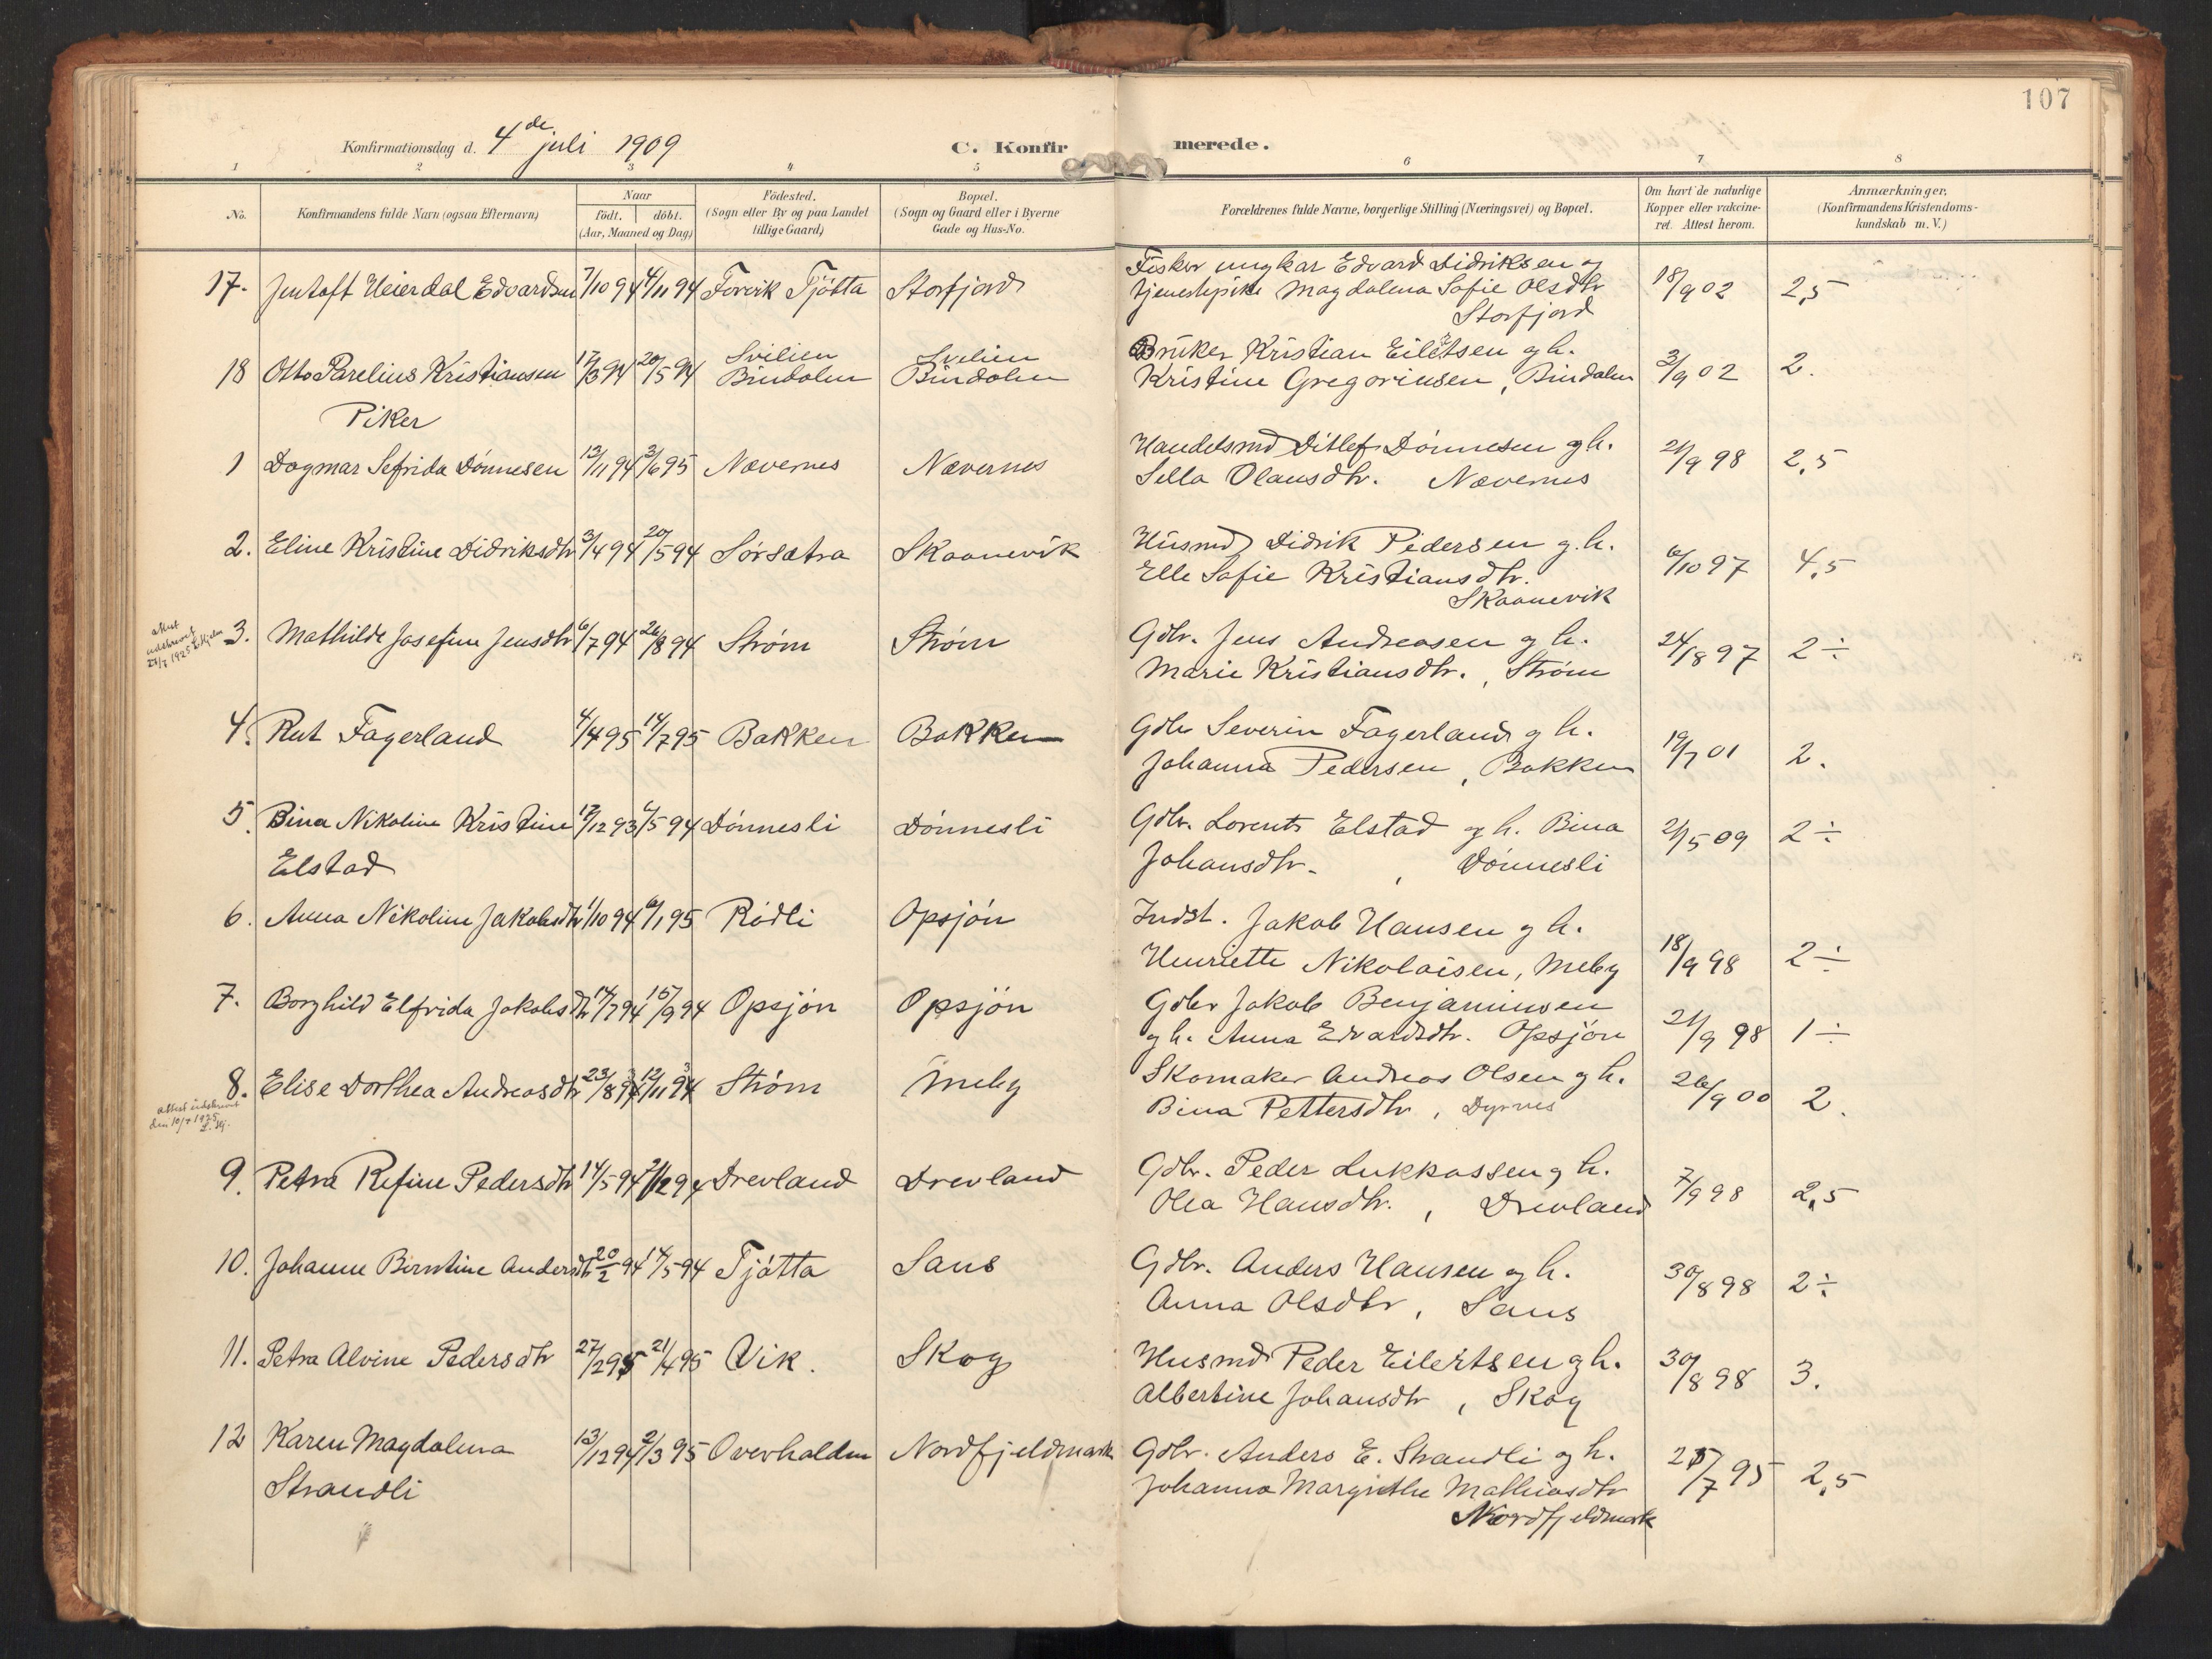 107
Konfirmationsdag d. 4de juli 1909
C. Konfirmerede.
1 2 3 4 5 6 7 8
No.
Konfirmandens fulde Navn (ogsaa Efternavn)
Naar
födt. döbt.
(Aar, Maaned og Dag)
Födested.
(Sogn eller By og paa Landet
tillige Gaard)
Bopæl.
(Sogn og Gaard eller i Byerne
Gade og Hus-No.
Forældrenes fulde Navne, borgerlige Stilling (Næringsvei) og Bopæl.
Om havt de naturlige
Kopper eller vakcine-
ret. Attest herom.
Anmærkninger.
(Konfirmandens Kristendoms-
kundskab m. V.)
17. Jentoft Heierdal Edvardsen 7/10 94 4/11 94 Forvik Tjötta Storfjord
Fisker ungkar Edvard Didriksen og
tjenestepike Magdalena Sofie Olsdtr
Storfjord
18/9 02 2,5
18 Otto Parelius Kristiansen 17/3 94 20/5 94
Svilien
Bindalen
Svelien
Bindalen
Bruker Kristian Eilertsen g h.
Kristine Gregoriusen, Bindalen
3/9 02 2.
Piker
1 Dagmar Sefrida Dönnesen 13/11 94 3/6 95 Nævernes Nævernes
Handelsmd Ditlef Dönnesen g h.
Sella Olausdtr. Nævernes
21/9 98 2,5
2. Eline Kristine Didriksdtr 3/4 94 20/5 94 Sörsætra Skaanevik
Husmd Didrik Pedersen g. h.
Elle Sofie Kristiansdtr.
Skaanevik
6/10 97 4,5
3. Mathilde Josefine Jensdtr 6/7 94 26/8 94 Ström Ström
Gdbr. Jens Andreasen g h.
Marie Kristiansdtr., Ström
24/8 97 2 ÷
4. Rut Fagerland 4/4 95 14/7 95 Bakken Bakken
Gdbr Severin Fagerland g h.
Johanna Pedersen, Bakken
19/7 01 2.
5. Bina Nikoline Kristine 17/12 93 6/5 94 Dönnesli Dönnesli
Elstad
Gdbr. Lorents Elstad g h. Bina
Johansdtr. , Dönnesli
2/5 09 2 ÷
6. Anna Nikoline Jakobsdtr 1/10 94 6/1 95 Rödli Opsjön
Indst. Jakob Hansen g h.
Henriette Nikolaisen, Meby
18/9 98 2 ÷
7. Borghild Elfrida Jakobsdtr 14/7 94 16/9 94 Opsjön Opsjön
Gdbr Jakob Benjaminsen
g h. Anna Edvardsdtr. Opsjön
21/9 98 1 ÷
8. Elise Dorthea Andreasdtr 23/8 93 12/11 93 Ström Meby
attest udskrevet
den 10/7 1925
Skomaker Andreas Olsen g h.
Bina Pettersdtr, Dyrnes
26/9 00 2.
9. Petra Refine Pedersdtr 14/5 94 2/12 94 Drevland Drevland
Gdbr. Peder Lukkassen g h.
Olea Hansdtr. , Drevland
7/9 98 2,5
10. Johanne Berntine Andersdtr 20/2 94 14/5 94 Tjötta Saus
Gdbr. Anders Hansen g h.
Anna Olsdtr, Saus
30/8 98 2 ÷
11. Petra Alvine Pedersdtr 27/2 95 21/4 95 Vik. Skog
Husmd Peder Eilertsen g h.
Albertine Johansdtr, Skog
30/8 98 3.
12 Karen Magdalena 13/12 94 2/3 95 Overhalden Nordfjeldmark
Strandli
Gdbr. Anders E. Strandli og h.
Johanna Margrethe Mathiasdtr
Nordfjeldmark
7 95 2,5